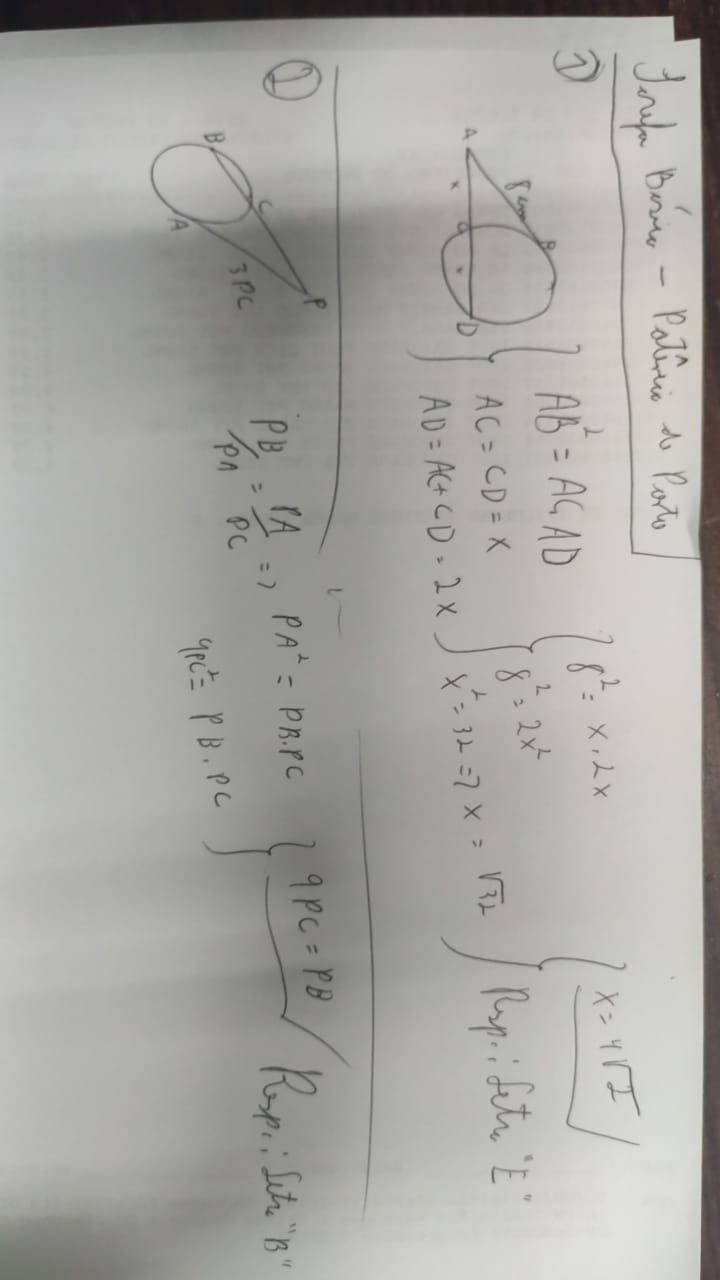 Tarefa Básica - Potência de Ponto
1
A
8 cm
B
x
C
D
AB² = AC.AD
AC = CD = x
AD = AC + CD = 2x
8² = x.2x
8² = 2x²
x² = 32 => x = √32
x = 4√2
Resp.: Letra "E"
2
B
C
A
3PC
P
PB/PA = PA/PC => PA² = PB.PC
9PC² = PB.PC
9PC = PB
Resp.: Letra "B"